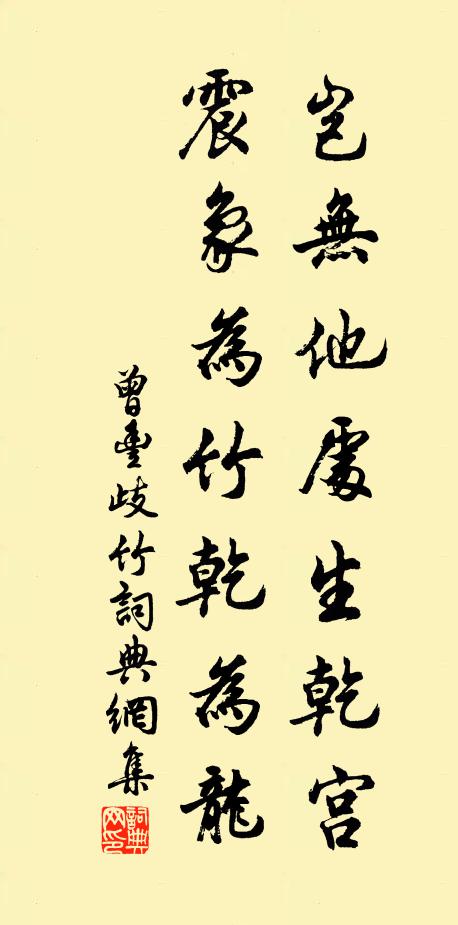 豈無他處生乾宮
震象為竹乾為龍
曾豐歧竹詞典網集
詞典網印